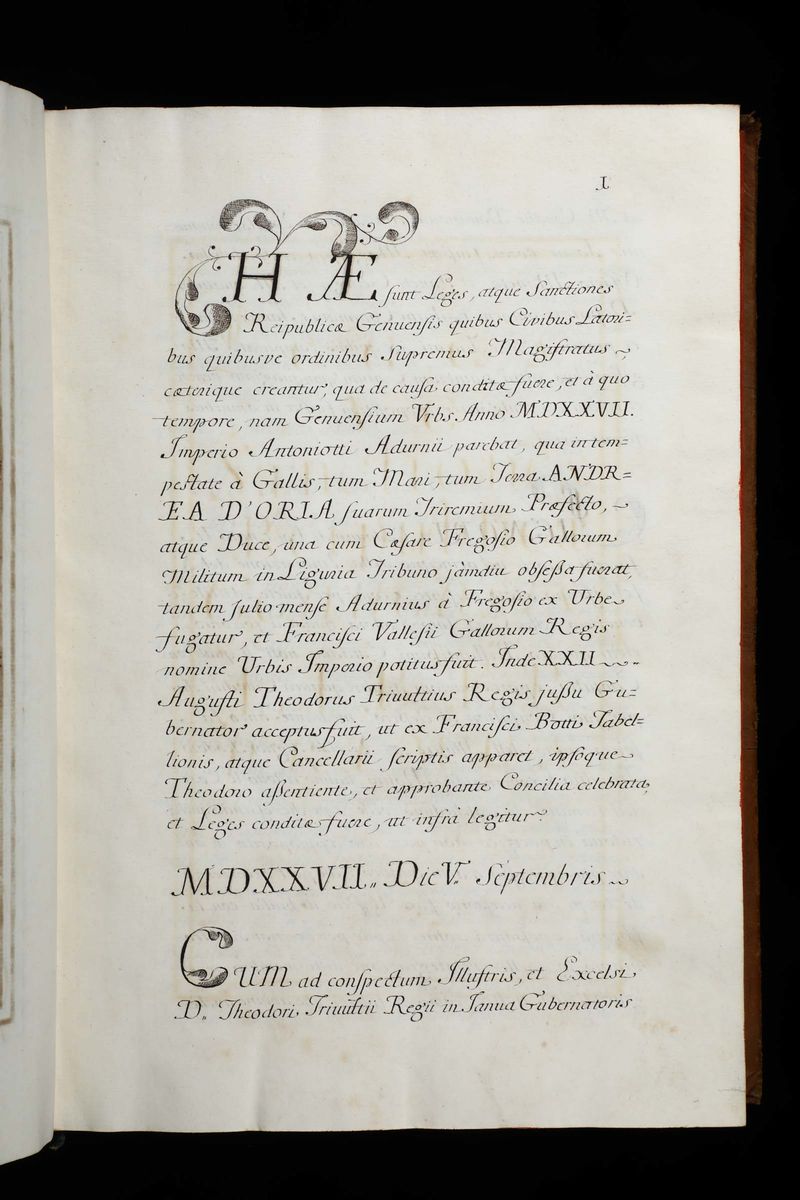 I
HÆ sunt Leges, atque Sanctiones
Reipublicæ Genuensis quibus Civibus Latori=
bus quibusve ordinibus Supremus Magistratus ~
cæterique creantur, qua de causa conditæ fuere, et à quo
tempore, nam Genuensium Vrbs Anno MDXXVII.
Imperio Antoniotti Adurnii parebat, qua in tem=
pestate à Gallis, tum Mari, tum Terra ANDR=
EA D'ORIA suarum Triremium Præfecto, ~
atque Duce, una cum Cæsare Fregosio Gallorum
Militum in Liguria Tribuno jàmdiu obsessa fuerat,
tandem Julio mense Adurnius à Fregosio ex Urbe
fugatur, et Francisci Vallesii Gallorum Regis
nomine Urbis Imperio potitus fuit. Inde XXII ~~
Augusti Theodorus Triuultius Regis jussu Gu=
bernator acceptus fuit, ut ex Francisci Botti Tabel=
lionis, atque Cancellarii scriptis apparet, ipsoque ~
Theodoro assentiente, et approbante Concilia celebrata,
et Leges conditæ fuere, ut infrà legitur.
MDXXVII,, Die V. Septembris ~
CUM ad conspectum Illustris, et Excelsi
D,, Theodori Triuultii Regii in Janua Gubernatoris